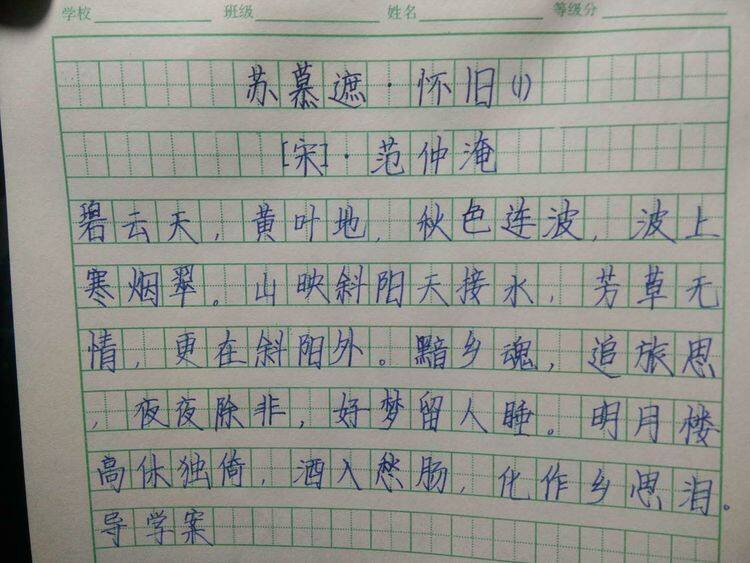 学校 班级 姓名 等级分
苏慕遮·怀旧(1)
[宋]·范仲淹
碧云天，黄叶地，秋色连波，波上
寒烟翠。山映斜阳天接水，芳草无
情，更在斜阳外。黯乡魂，追旅思
，夜夜除非，好梦留人睡。明月楼
高休独倚，酒入愁肠，化作乡思泪。
导学案